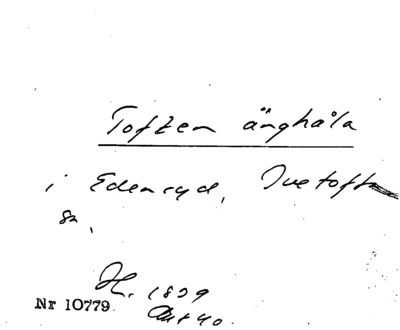 Toften änghåla
i Edenryd, Ivetofta
sn.
H. 1839
Akt 40.
Nr 10779